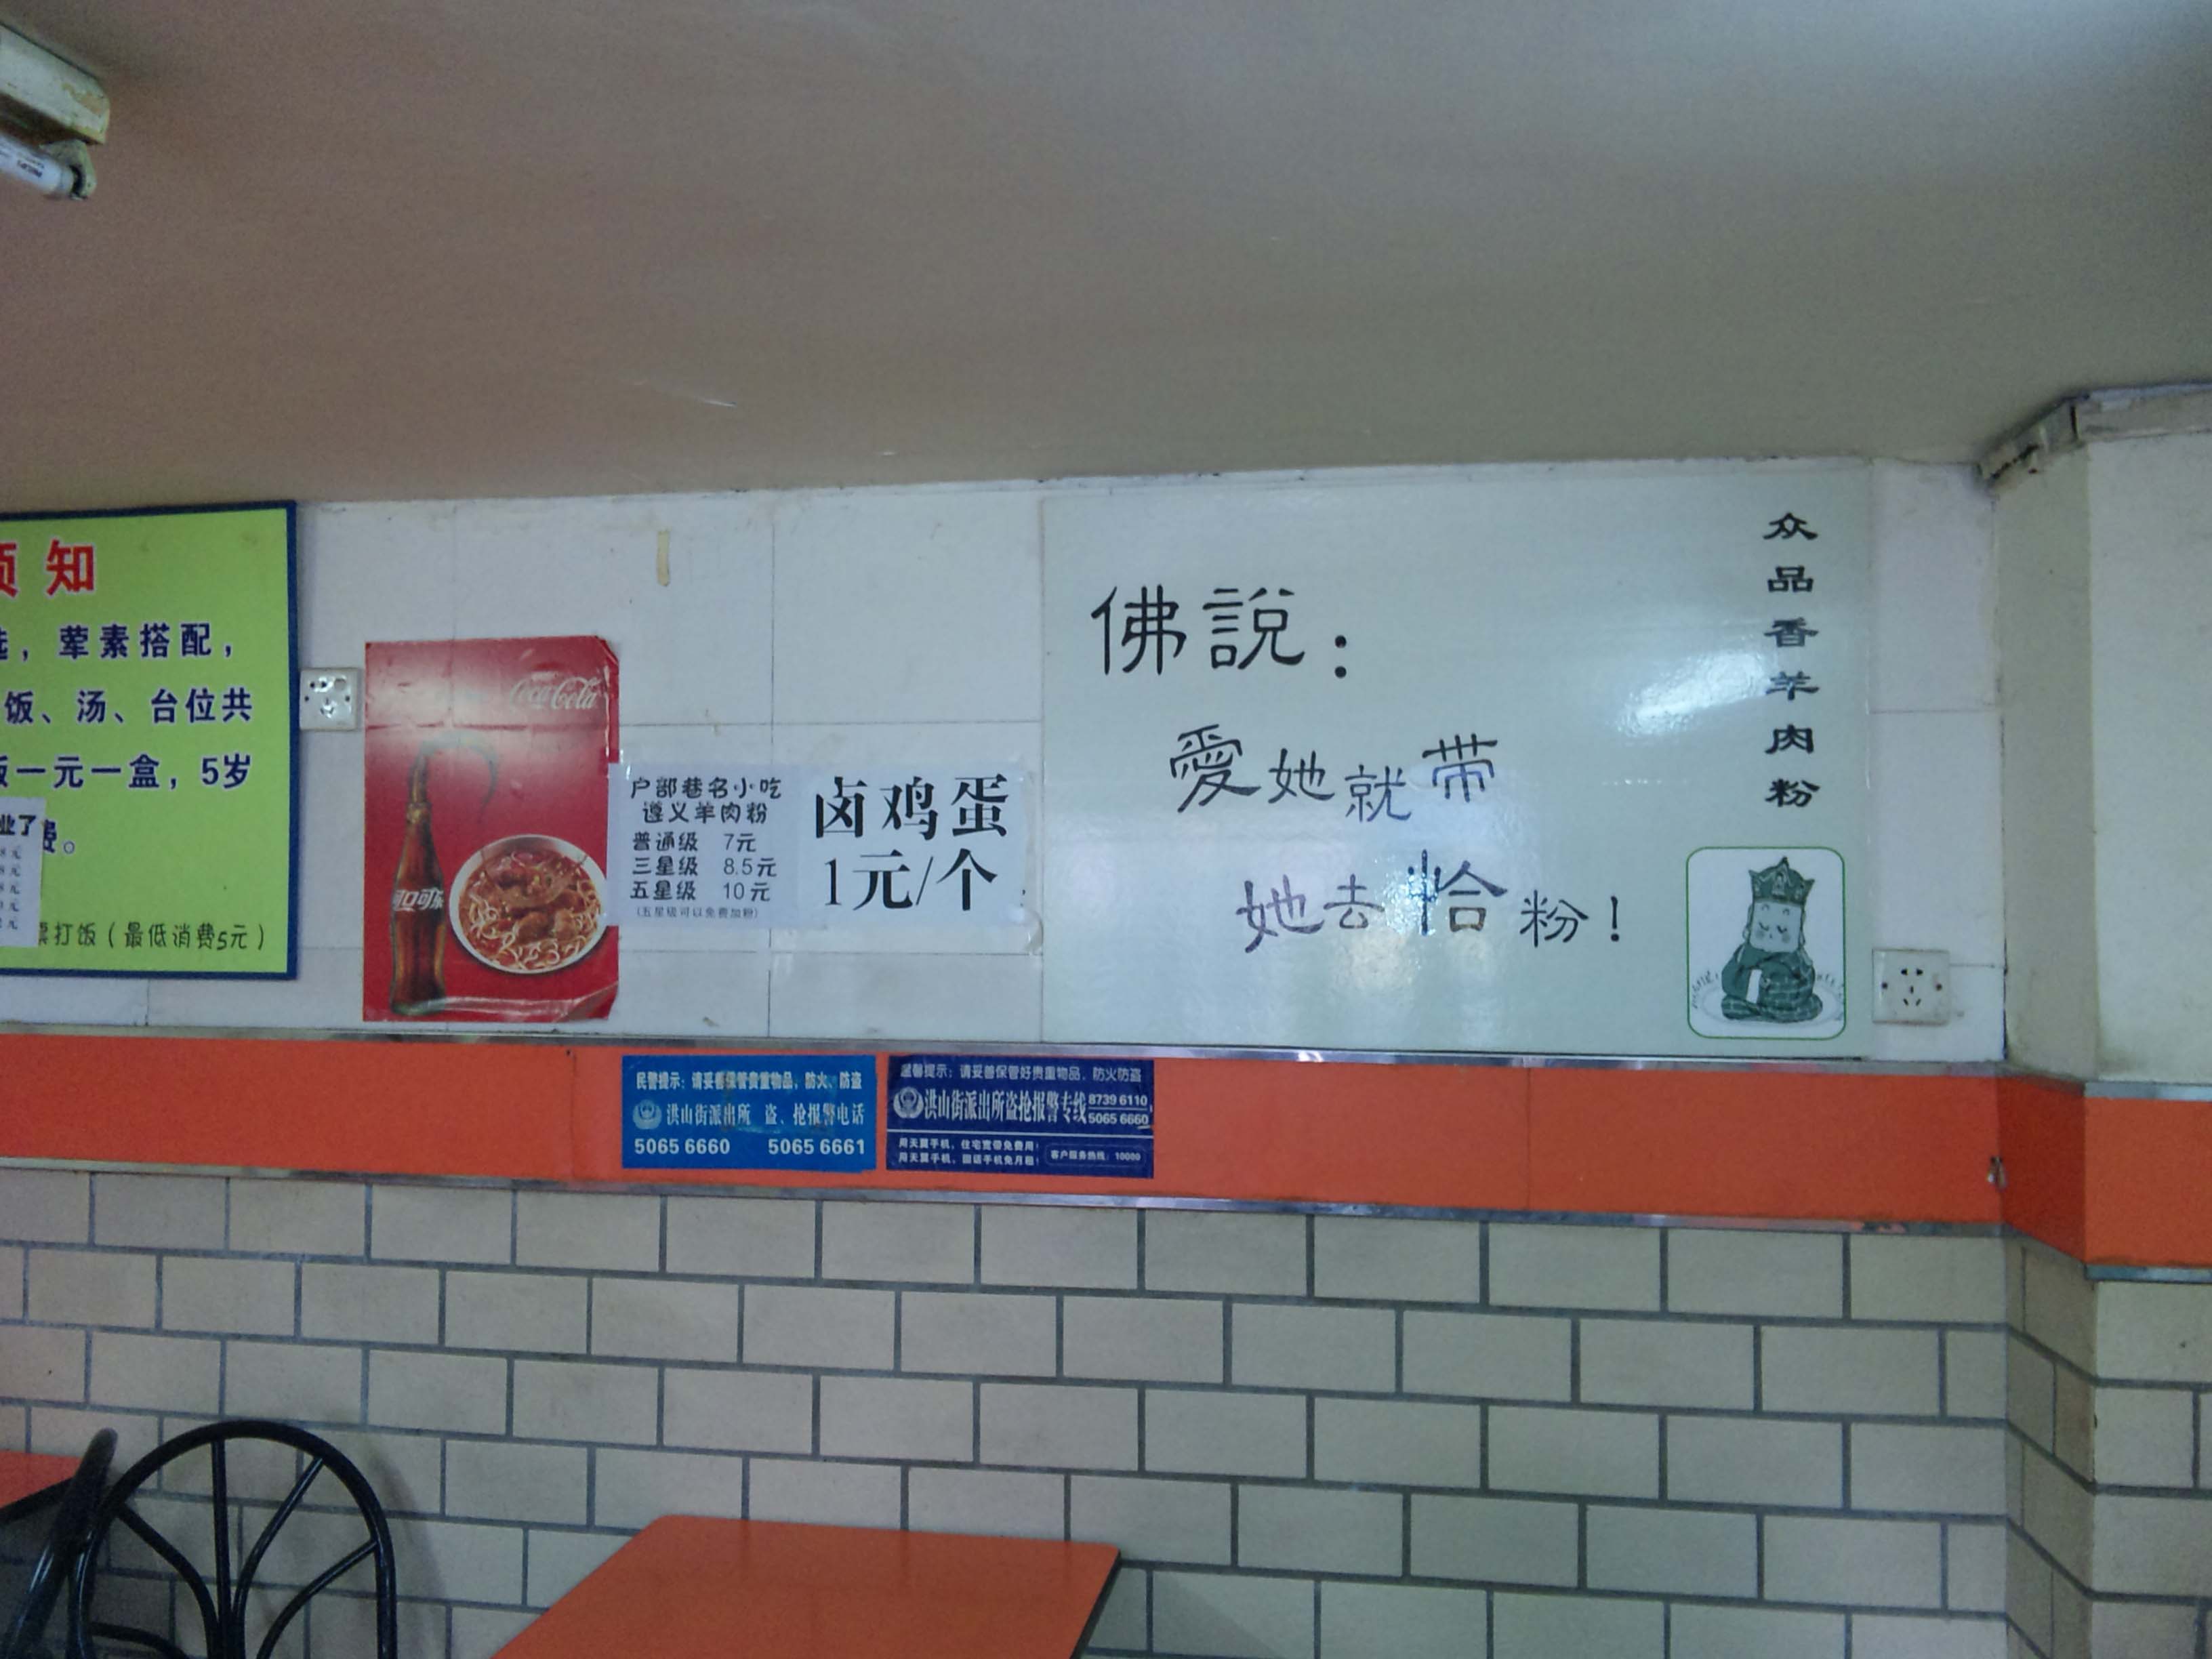 须知
荤素搭配，
饭、汤、台位共
一元一盒，5岁
业了
费。
票打饭（最低消费5元）
Coca-Cola
可口可乐
户部巷名小吃
遵义羊肉粉
普通级 7元
三星级 8.5元
五星级 10元
（五星级可以免费加粉）
卤鸡蛋
1元/个
佛說：
愛她就带
她去恰粉！
众品香羊肉粉
民警提示：请妥善保管贵重物品，防火、防盗
洪山街派出所 盗、抢报警电话
5065 6660 5065 6661
温馨提示：请妥善保管好贵重物品，防火防盗
洪山街派出所盗抢报警专线 8739 6110
5065 6660
用天翼手机，住宅宽带免费用！
用天翼手机，固话手机免月租！
客户服务热线：10000